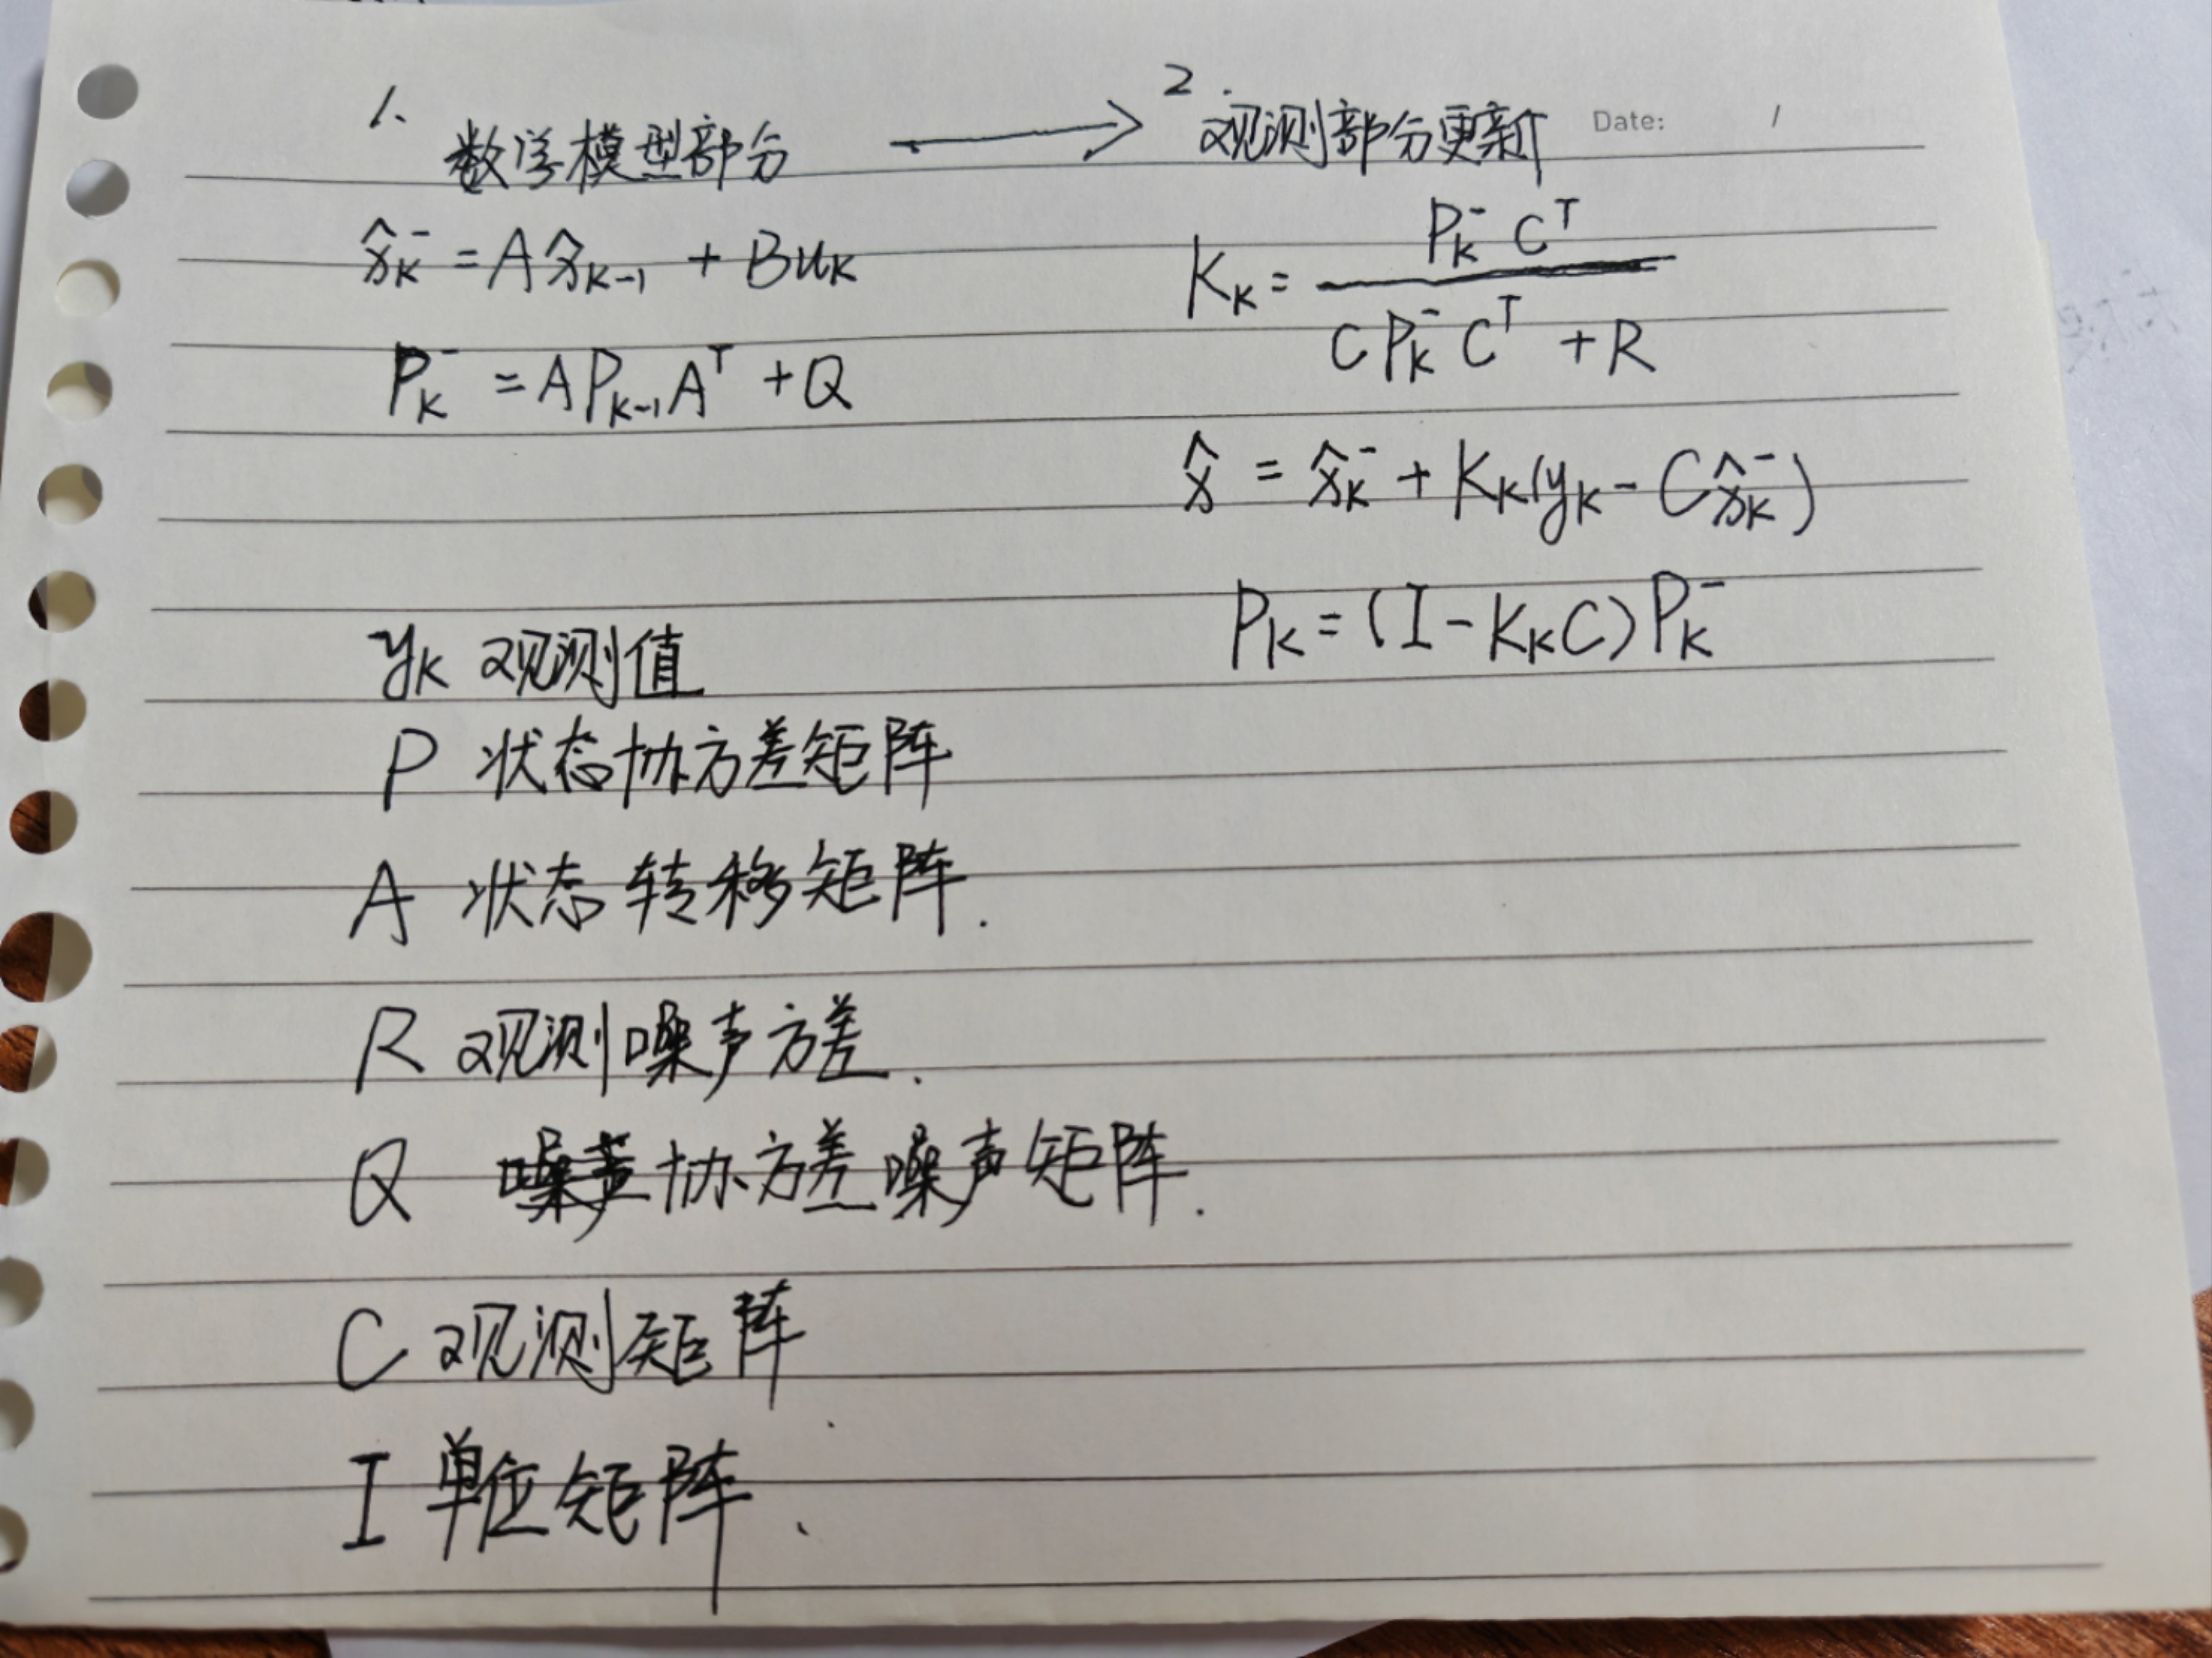 1、数学模型部分 ⟶ 2. 观测部分更新
Date: /
x̂ₖ⁻ = A x̂ₖ₋₁ + Buₖ
Pₖ⁻ = A Pₖ₋₁ Aᵀ + Q
Kₖ = Pₖ⁻ Cᵀ / (C Pₖ⁻ Cᵀ + R)
x̂ = x̂ₖ⁻ + Kₖ(yₖ - C x̂ₖ⁻)
Pₖ = (I - KₖC) Pₖ⁻
yₖ 观测值
P 状态协方差矩阵
A 状态转移矩阵.
R 观测噪声方差.
Q 协方差噪声矩阵.
C 观测矩阵.
I 单位矩阵、